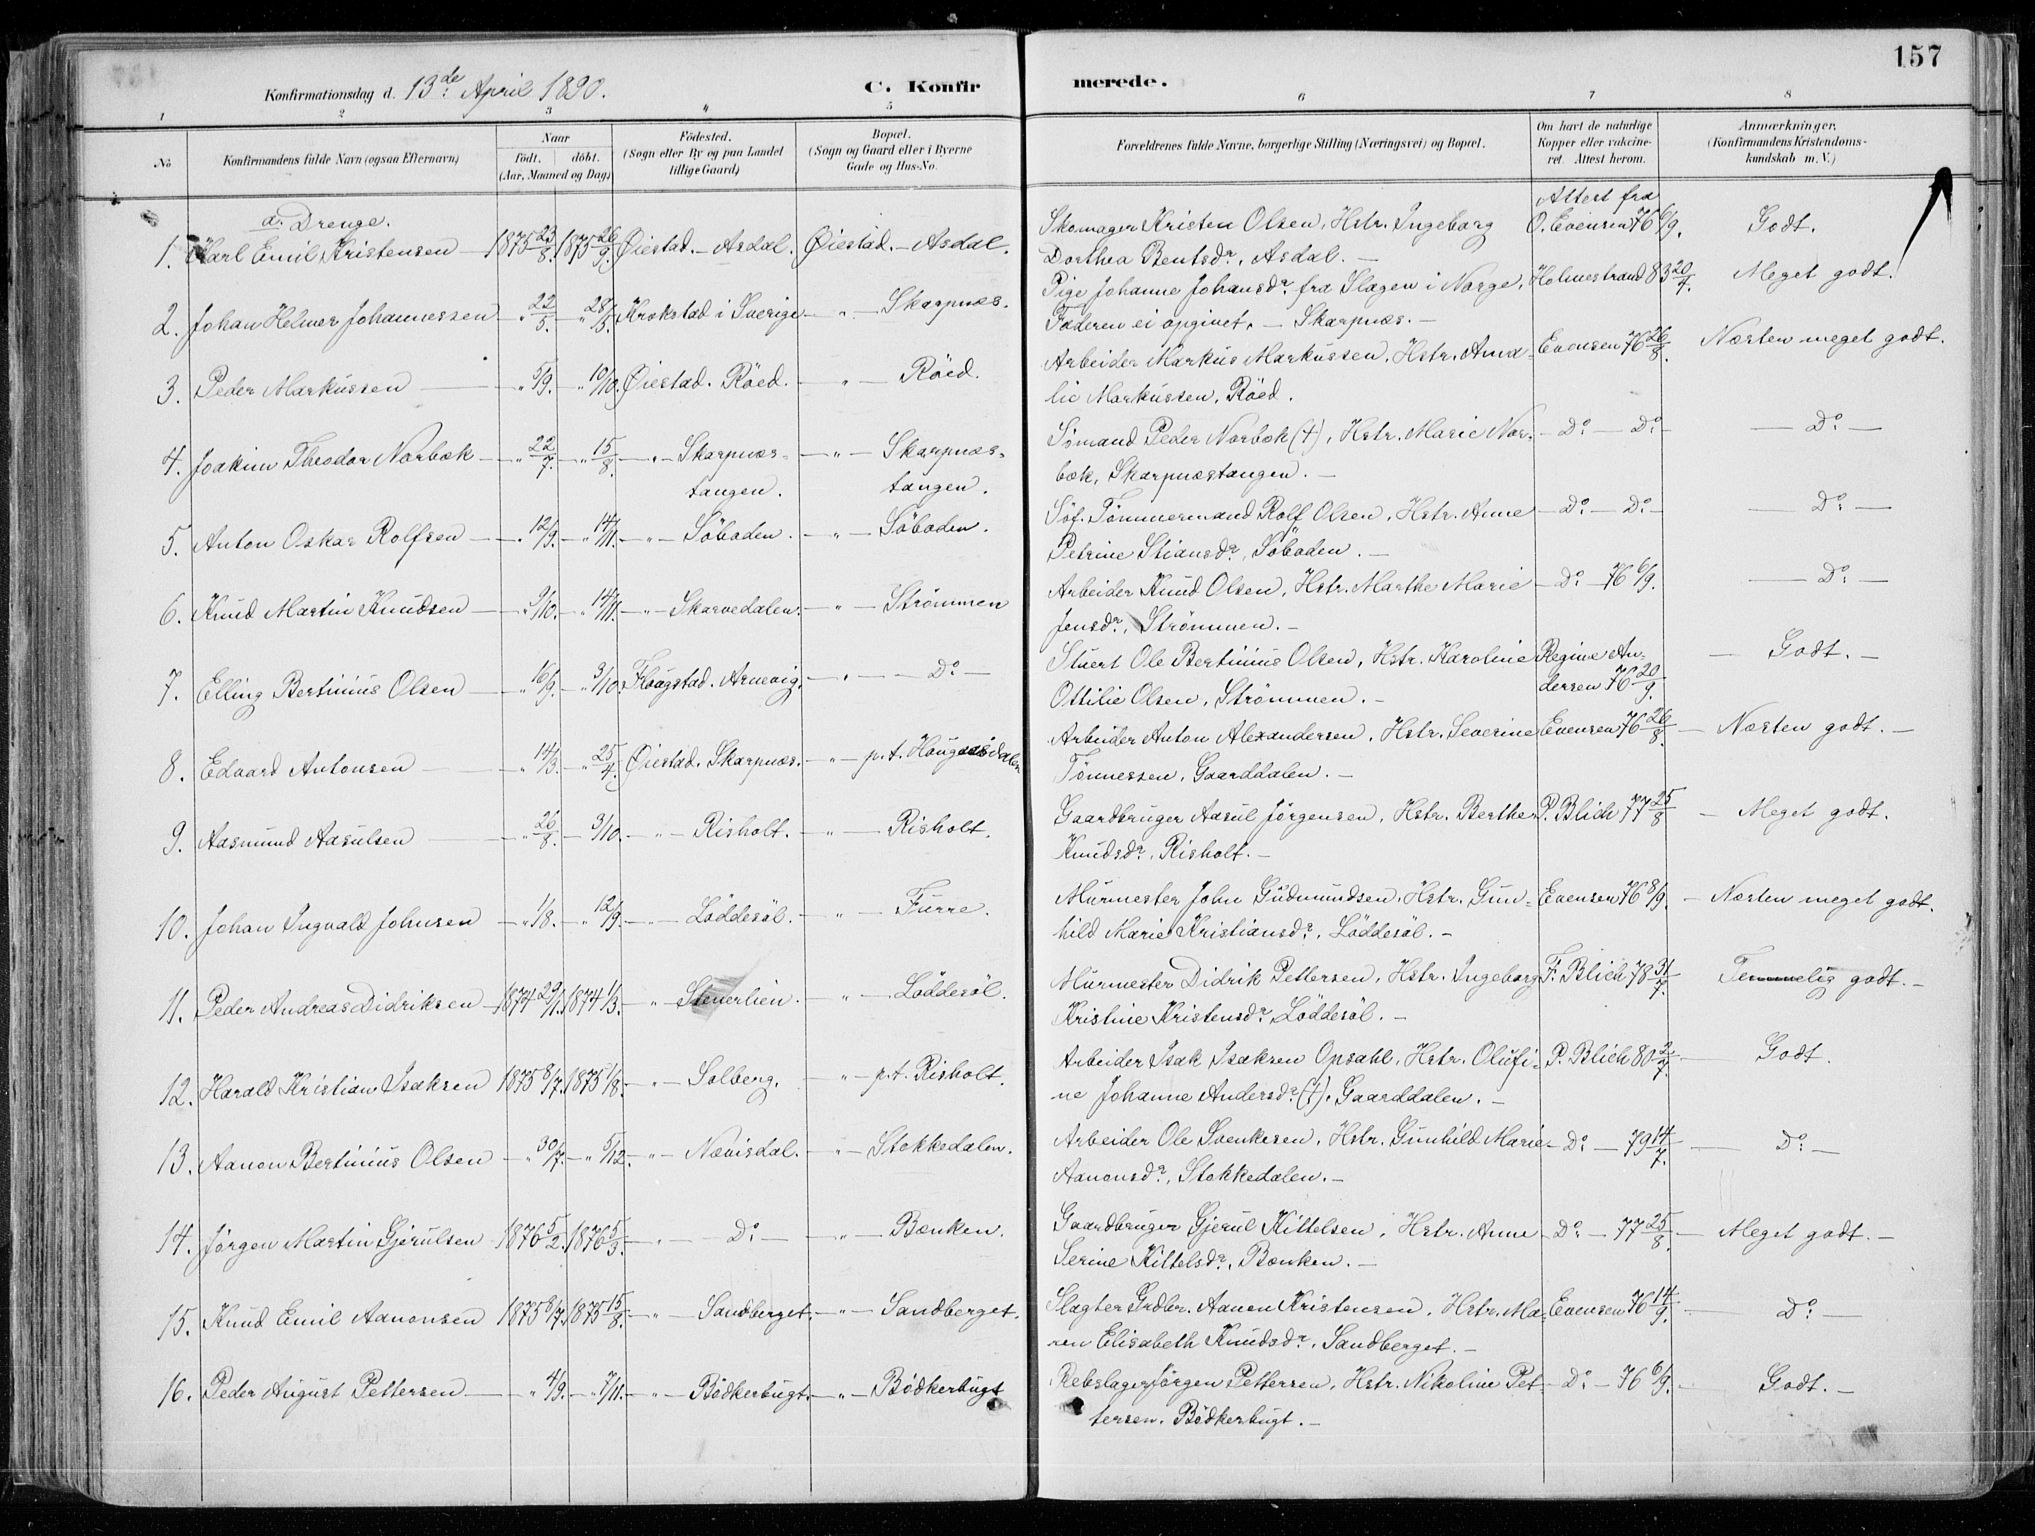 157
Konfirmationsdag d. 13de April 1890.
C. Konfir
merede.
1 2 3 4 5 6 7 8
No
Konfirmandens fulde Navn (ogsaa Efternavn)
Naar
födt. döbt.
(Aar, Maaned og Dag)
Födested.
(Sogn eller By og paa Landet
tillige Gaard)
Bopæl.
(Sogn og Gaard eller i Byerne
Gade og Hus-No.
Forældrenes fulde Navne, borgerlige Stilling (Næringsvei) og Bopæl.
Om havt de naturlige
Kopper eller vakcine-
ret. Attest herom.
Anmærkninger.
(Konfirmandens Kristendoms-
kundskab m. V.)
a. Drenge.
1. Karl Emil Kristensen 1875 23/8. 1875 26/9. Öiestad. - Asdal. Öiestad. - Asdal.
Skomager Kristen Olsen, Hstr. Ingeborg
Dorthea Bentsdr., Asdal. -
Attest fra
O. Evensen 76 6/9.
Godt.
2. Johan Helmer Johannessen - " 22/5. - " 28/5. Krokstad i Sverige - " - Skarpnæs.
Pige Johanne Johansdr. fra Slagen i Norge,
Faderen ei opgivet. - Skarpnæs. -
Holmestrand 83 20/7.
Meget godt.
3. Peder Markussen - " 5/9. - " 10/10. Öiestad. Röed. - " - Röed.
Arbeider Markus Markussen, Hstr. Ama-
lie Markussen, Röed.
Evensen 76 26/8.
Næsten meget godt.
4. Joakim Theodor Norbæk - " 22/7. - " 15/8. - " - Skarpnæs-
tangen. - " - Skarpnæs-
tangen.
Sömand Peder Norbæk (†), Hstr. Marie Nor-
bæk, Skarpnæstangen. -
- Do - Do -
- Do -
5. Anton Oskar Rolfsen - " 12/9. - " 14/11. - " - Söboden. - " - Söboden.
Söf. Tömmermand Rolf Olsen, Hstr. Anne
Petrine Stiansdr., Söboden. -
- Do - Do -
- Do -
6. Knud Martin Knudsen - " 9/10. - " 14/11. - " - Skarvedalen. - " - Strömmen
Arbeider Knud Olsen, Hstr. Marthe Marie
Jensdr., Strömmen. -
- Do - 76 6/9.
- Do -
7. Elling Bertinius Olsen - " 16/9. - " 3/10. Flaugstad. Arnevig. - " - Do -
Stuert Ole Bertinius Olsen, Hstr. Karoline
Ottilie Olsen, Strömmen. -
Regine An-
dersen 76 20/9.
- Godt. -
8. Edvard Antonsen - " 14/3. - " 25/4. Öiestad. Skarpnæs. - " - p. t. Haugaasdalen
Arbeider Anton Alexandersen, Hstr. Severine
Tönnessen, Gaarddalen. -
Evensen 76 26/8.
- Næsten godt. -
9. Aasmund Aasulsen - " 26/8. - 3/10. - " - Risholt. - " - Risholt.
Gaardbruger Aasul Jörgensen, Hstr. Berthe
Knudsdr., Risholt. -
P. Blich 77 25/8
- Meget godt.
10. Johan Ingvald Johnsen - " 1/8. - " 12/9. - " - Löddesöl. - " - Furre.
Murmester John Gudmundsen, Hstr. Gun-
hild Marie Kristiansdr., Löddesöl. -
Evensen 76 8/9.
- Næsten meget godt.
11. Peder Andreas Didriksen - 1874 29/1. 1874 1/3. - " - Stenerlien. - " - Löddesöl.
Murmester Didrik Pettersen, Hstr. Ingeborg
Kristine Kristensdr. Löddesöl. -
F. Blich 78 31/7.
- Temmelig godt. -
12. Harald Kristian Isaksen 1875 8/7. 1875 1/8. - " - Solberg. - " - p. t. Risholt.
Arbeider Isak Isaksen Opsahl, Hstr. Olufi-
ne Johanne Andersdr. (†). Gaarddalen. -
P. Blich 80 2/7.
- Godt.
13. Aanon Bertinius Olsen - " 30/7. - " 5/12. - " - Nævisdal. - " - Stokkedalen.
Arbeider Ole Svenkesen, Hstr. Gunhild Marie
Aanonsdr., Stokkedalen. -
- Do - 79 14/7.
- Do -
14. Jörgen Martin Gjerulsen 1876 5/2. 1876 5/3. - " - Do - - " - Bænken.
Gaardbruger Gjerul Kittelsen, Hstr. Anne
Serine Kittelsdr., Bænken. -
- Do - 77 25/8.
- Meget godt. -
15. Knud Emil Aanonsen 1875 8/7. 1875 15/8. - " - Sandberget. - " - Sandberget.
Slagter Grdbr. Aanon Kristensen, Hstr. Ma-
ren Elisabeth Knudsdr., Sandberget. -
Evensen 76 14/9.
- Do -
16. Peder August Pettersen - " 4/9. - " 7/11. - " - Bödkerbugt. - " - Bödkerbugt
Rebslager Jörgen Pettersen, Hstr. Nikoline Pet-
tersen. Bödkerbugt. -
- Do - 76 6/9.
- Godt. -